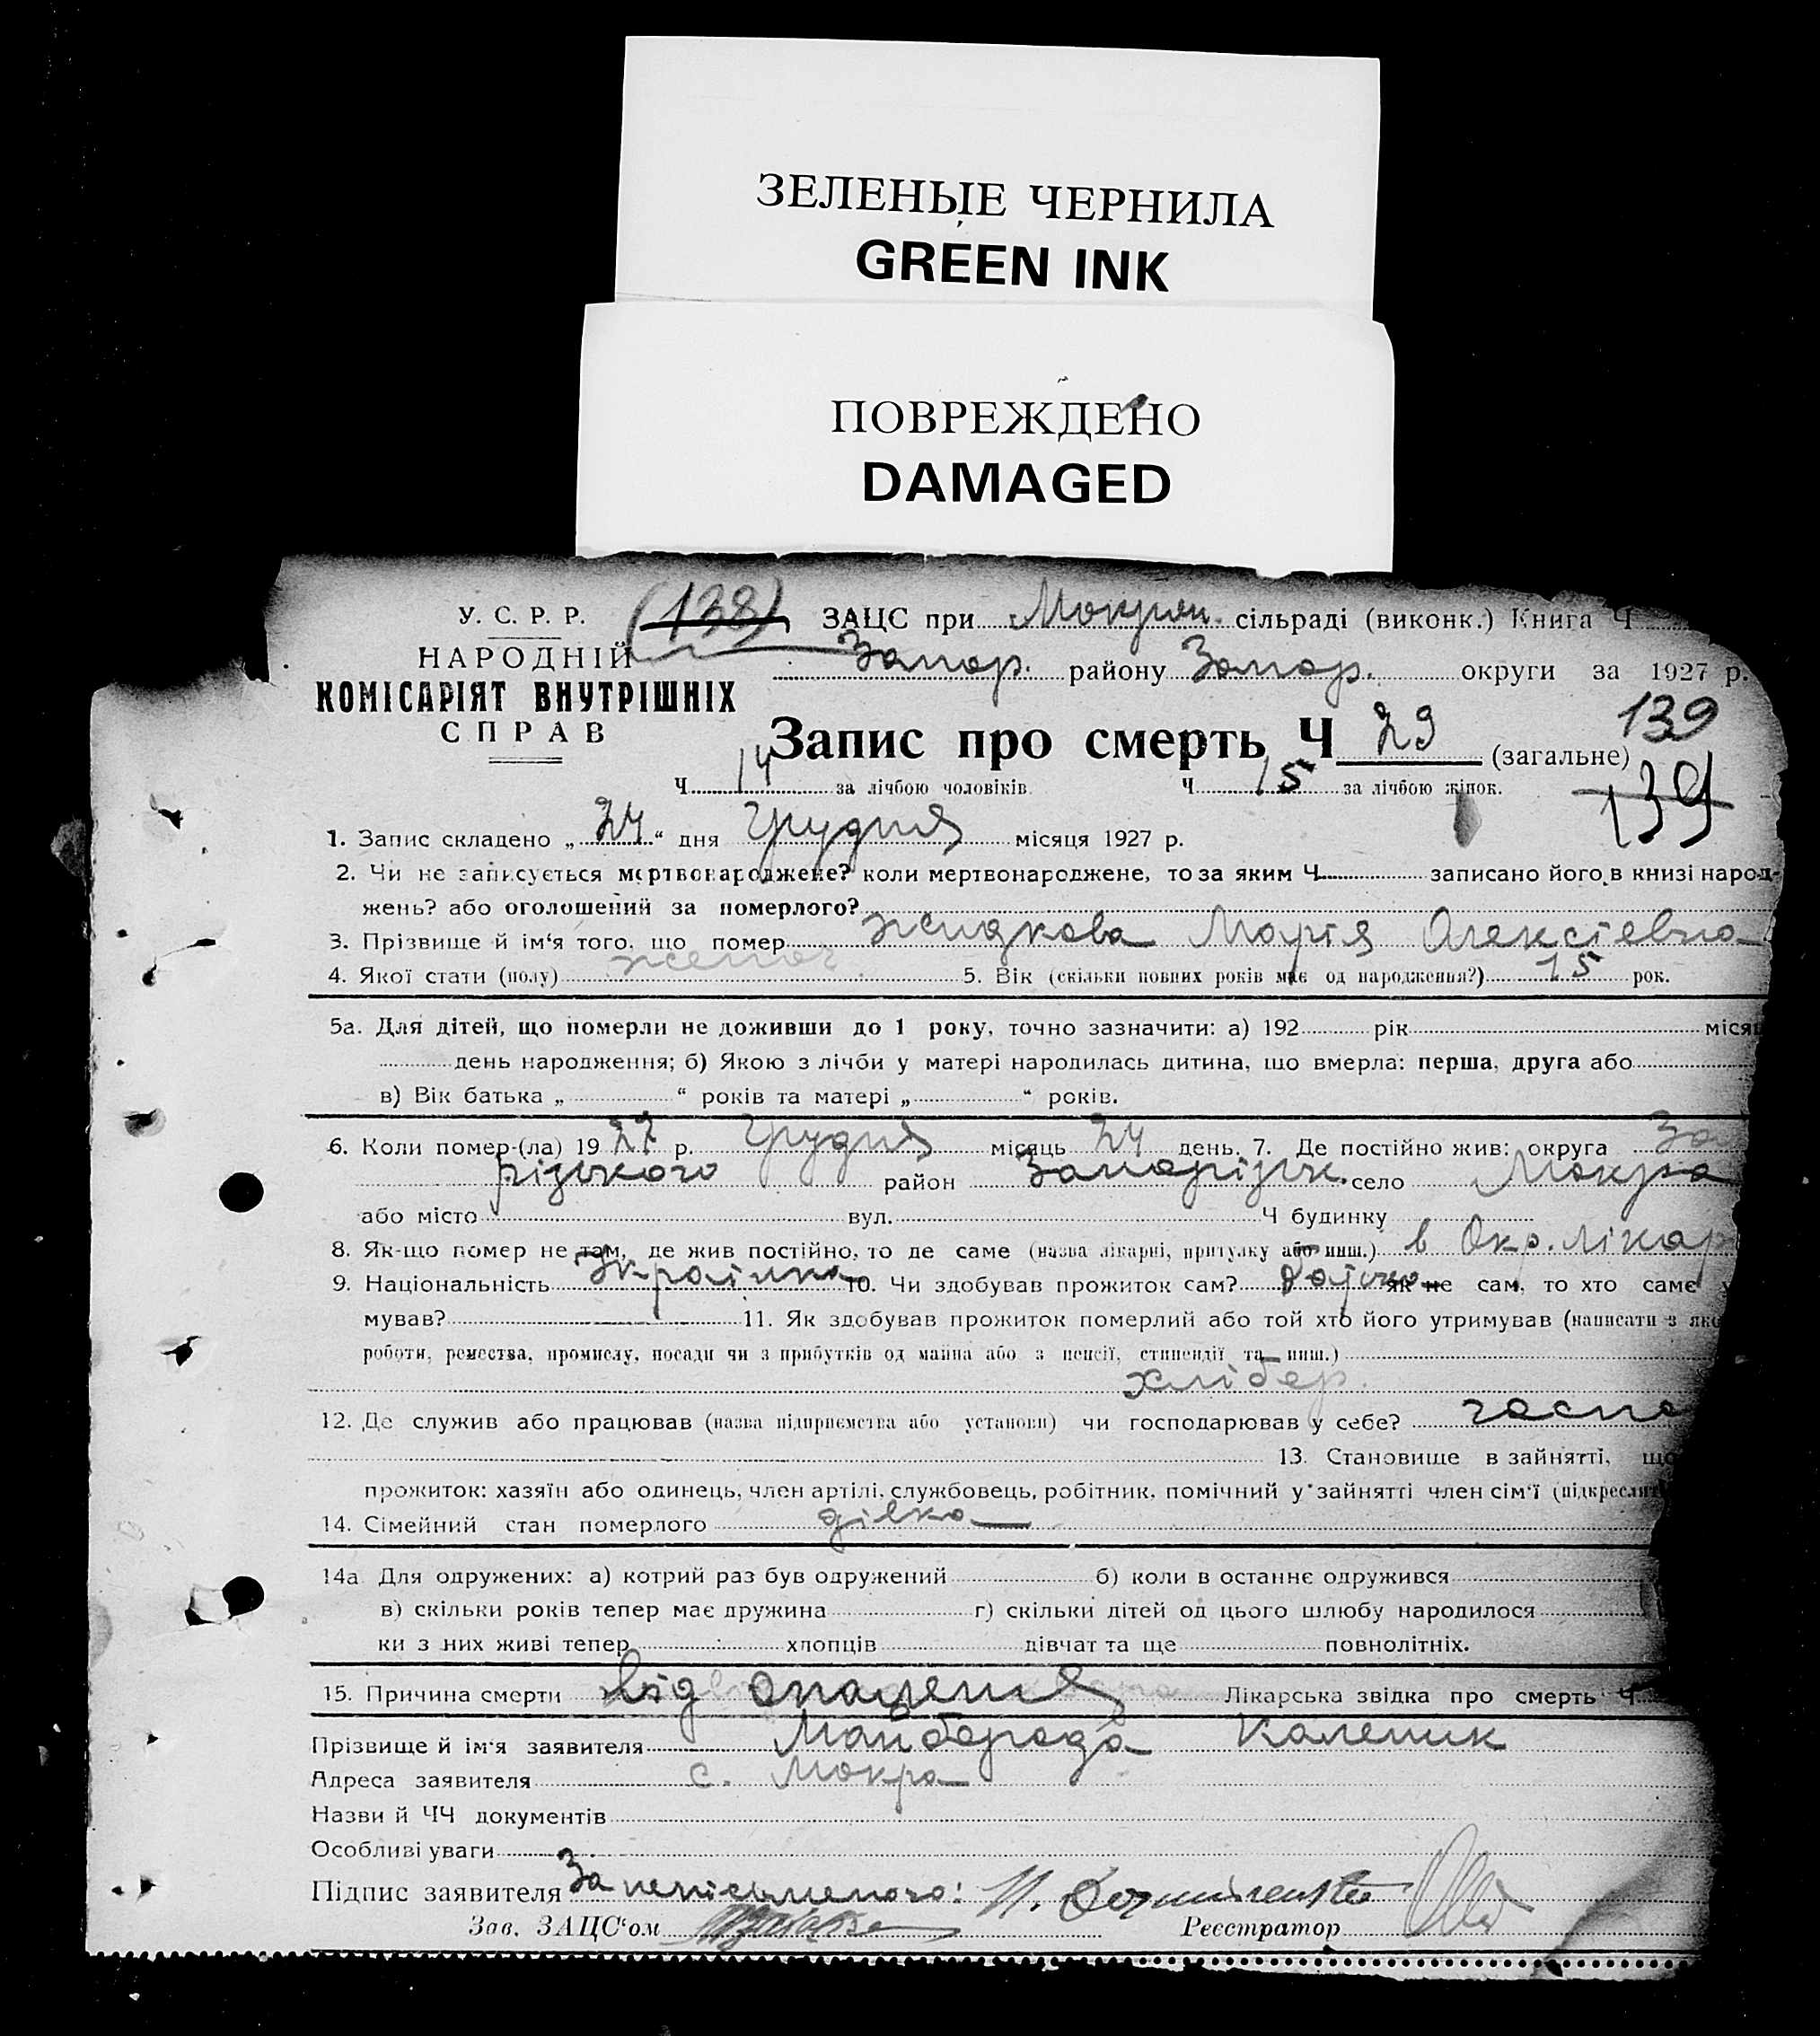 ЗЕЛЕНЫЕ ЧЕРНИЛА
GREEN INK
ПОВРЕЖДЕНО
DAMAGED
У. С. Р. Р. (138) ЗАЦС при Мокрян. сільраді (виконк.) Книга Ч
НАРОДНІЙ Запор. району Запор. округи за 1927 р.
КОМІСАРІЯТ ВНУТРІШНІХ
СПРАВ
139
Запис про смерть Ч 29 (загальне)
139
Ч 14 за лічбою чоловіків. Ч 15 за лічбою жінок.
1. Запис складено „ 24 “ дня Грудня місяця 1927 р.
2. Чи не записується мертвонароджене? коли мертвонароджене, то за яким Ч записано його в книзі народ-
жень? або оголошений за померлого?
3. Прізвище й ім‘я того, що помер Жидкова Марія Олексіевна
4. Якої стати (полу) жіноч 5. Вік (скільки повних років має од народження?) 15 рок.
5а. Для дітей, що померли не доживши до 1 року, точно зазначити: а) 192 рік місяц
день народження; б) Якою з лічби у матері народилась дитина, що вмерла: перша, друга або
в) Вік батька „ “ років та матері „ “ років.
6. Коли помер-(ла) 1927 р. Грудня місяць 24 день. 7. Де постійно жив: округа Запо
різького район Запоріжк. село Мокра
або місто вул. Ч будинку
8. Як-що помер не там, де жив постійно, то де саме (назва лікарні, притулку або инш.) в Окр. лікар
9. Національність Украінка 10. Чи здобував прожиток сам? як не сам, то хто саме у
мував? 11. Як здобував прожиток померлий або той хто його утримував (написати з яко
роботи, ремества, промислу, посади чи з прибутків од майна або з пенсії, стипендії та инш.)
хлібер.
12. Де служив або працював (назва підприємства або установи) чи господарював у себе? госпо
13. Становище в зайнятті, що
прожиток: хазяїн або одинець, член артілі, службовець, робітник, помічний у зайнятті член сім‘ї (підкреслит
14. Сімейний стан померлого дівка
14а Для одружених: а) котрий раз був одружений б) коли в останнє одружився
в) скільки років тепер має дружина г) скільки дітей од цього шлюбу народилося
ки з них живі тепер хлопців дівчат та ще повнолітніх.
15. Причина смерти від опаления Лікарська звідка про смерть Ч
Прізвище й ім‘я заявителя Майборода Каленик
Адреса заявителя с. Мокра
Назви й ЧЧ документів
Особливі уваги
Підпис заявителя За неписьменого:
Зав. ЗАЦС‘ом Реєстратор